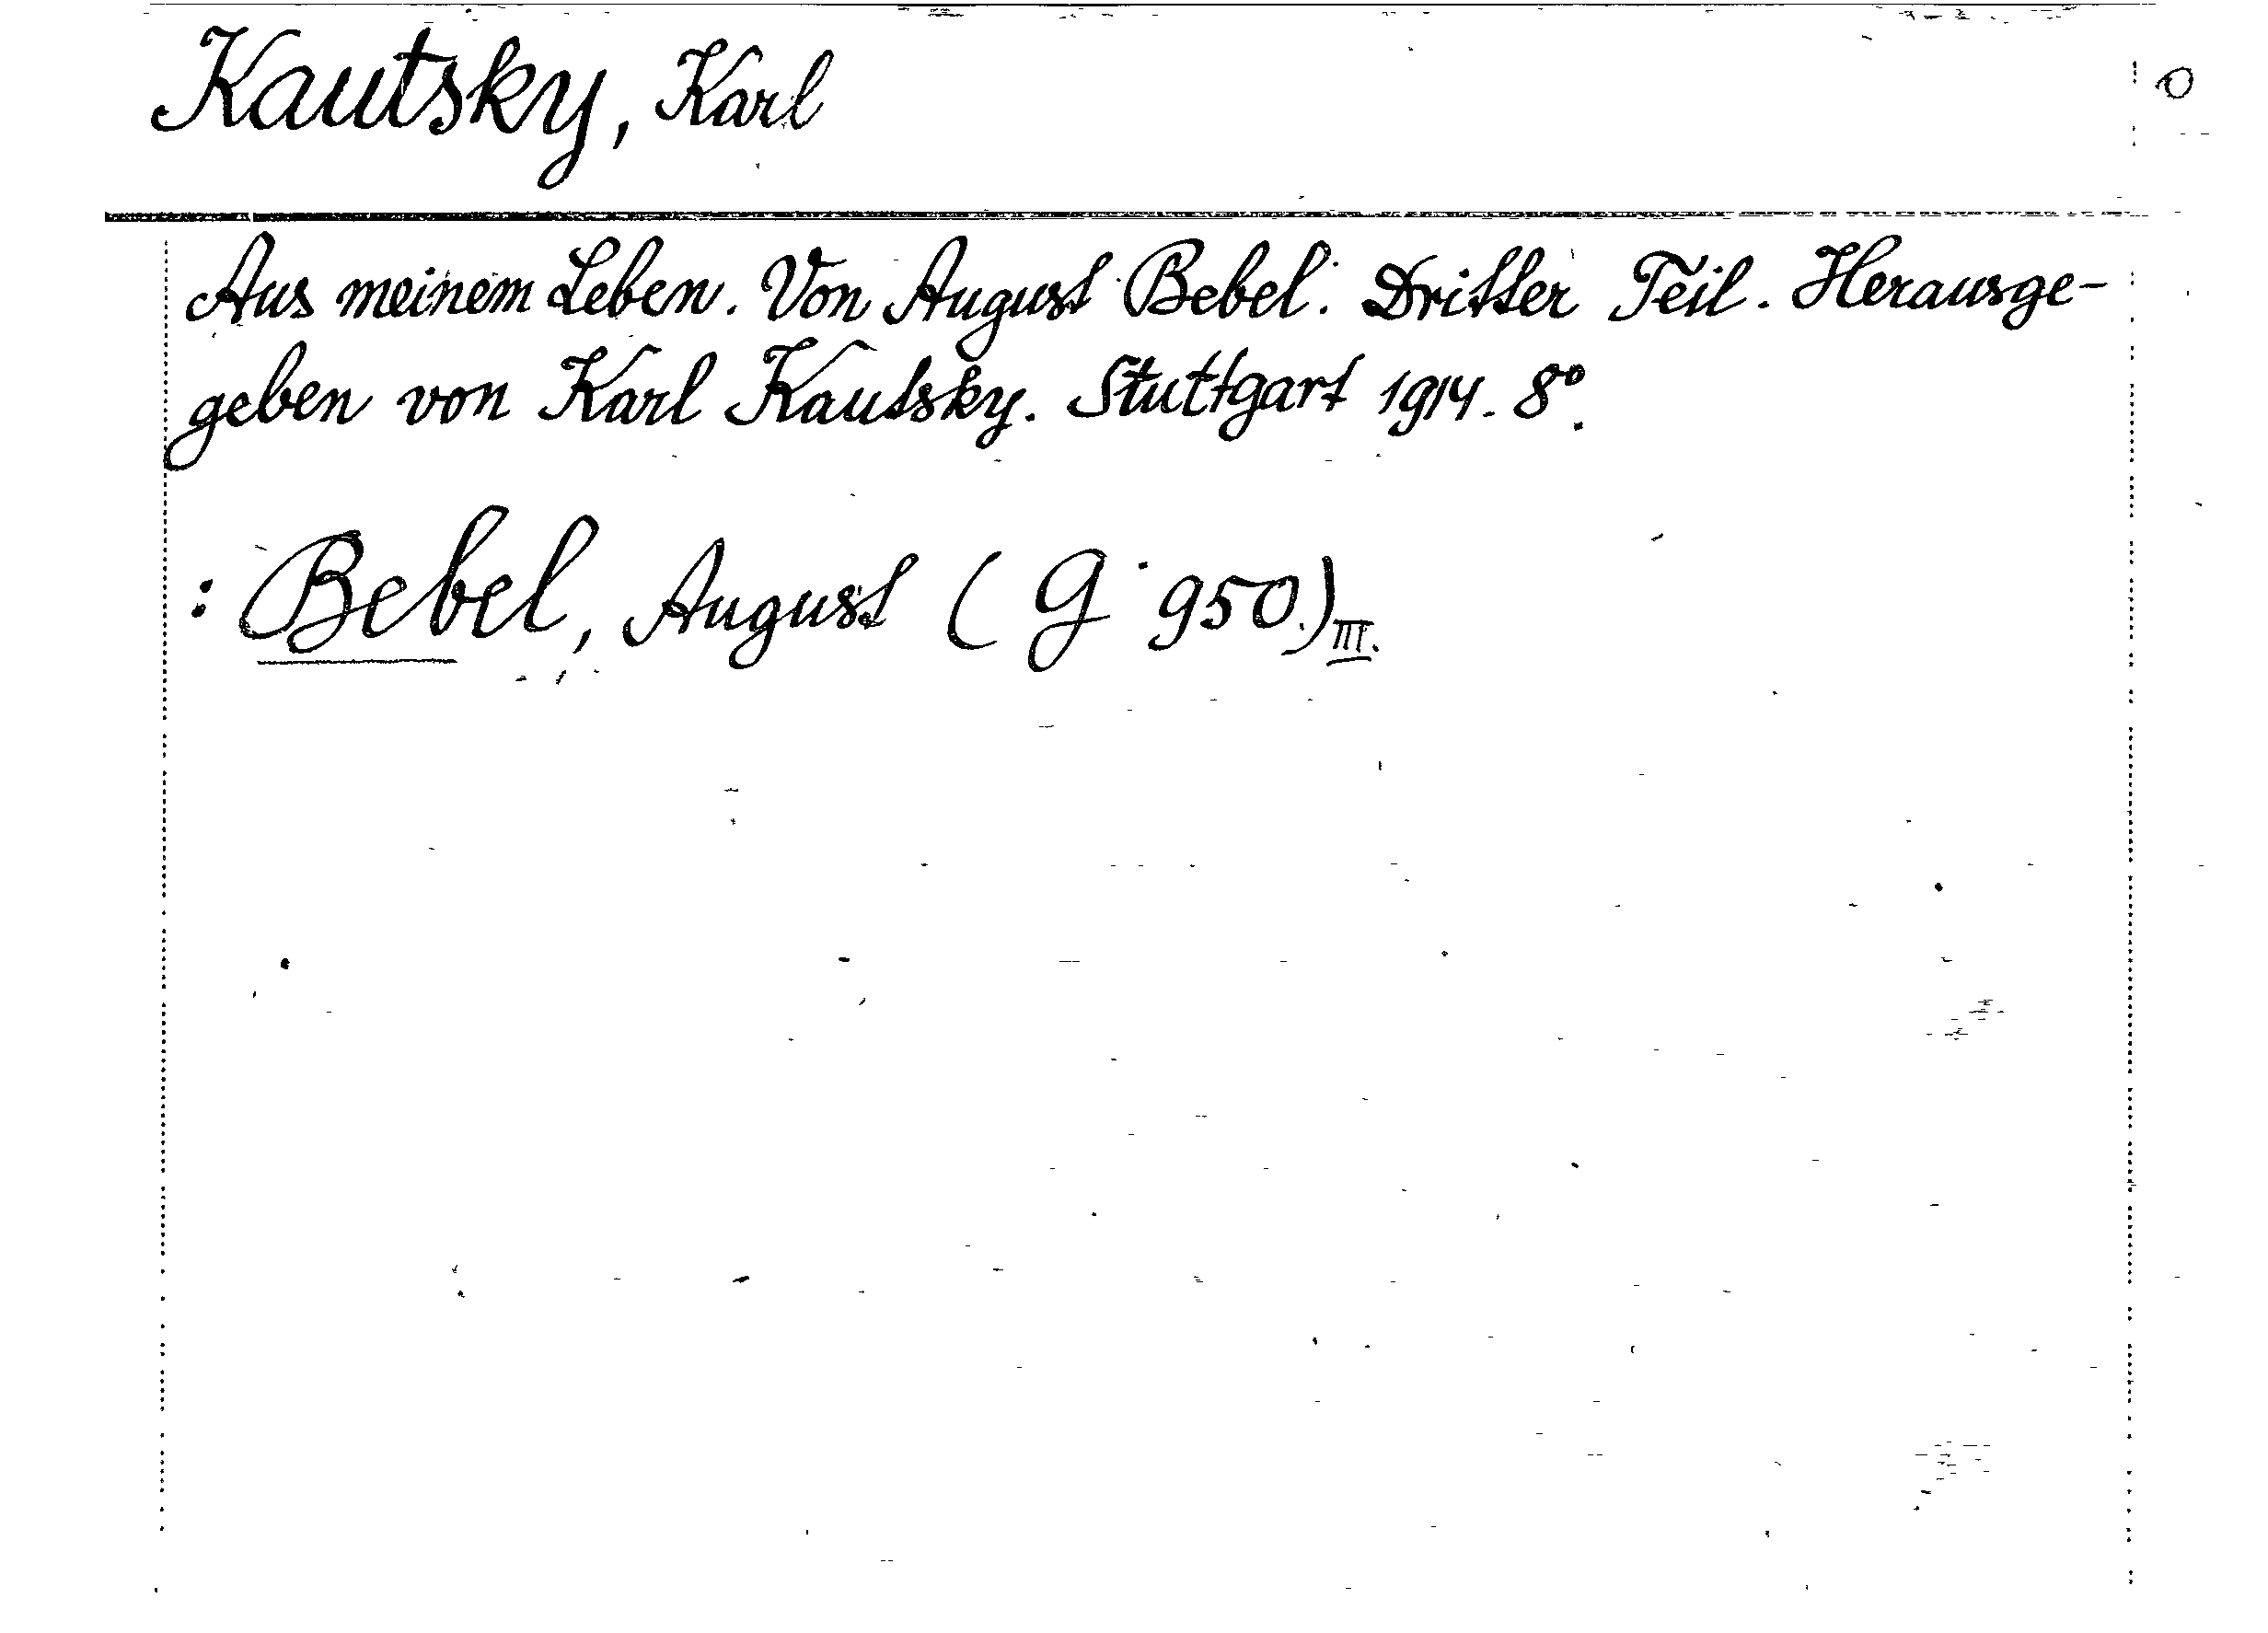 Kautsky, Karl
0
Aus meinem Leben. Von August Bebel. Dritter Teil. Herausge-
geben von Karl Kautsky. Stuttgart 1914. 8°.
: Bebel, August (G 950.) III.